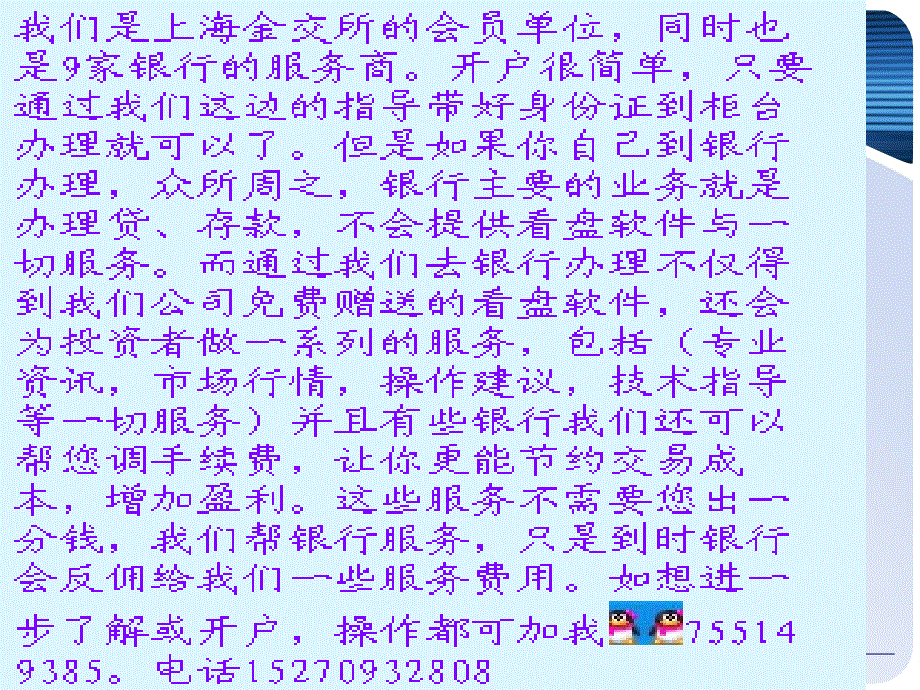 我们是上海金交所的会员单位，同时也
是9家银行的服务商。开户很简单，只要
通过我们这边的指导带好身份证到柜台
办理就可以了。但是如果你自己到银行
办理，众所周之，银行主要的业务就是
办理贷、存款，不会提供看盘软件与一
切服务。而通过我们去银行办理不仅得
到我们公司免费赠送的看盘软件，还会
为投资者做一系列的服务，包括（专业
资讯，市场行情，操作建议，技术指导
等一切服务）并且有些银行我们还可以
帮您调手续费，让你更能节约交易成
本，增加盈利。这些服务不需要您出一
分钱，我们帮银行服务，只是到时银行
会反佣给我们一些服务费用。如想进一
步了解或开户，操作都可加我75514
9385。电话15270932808